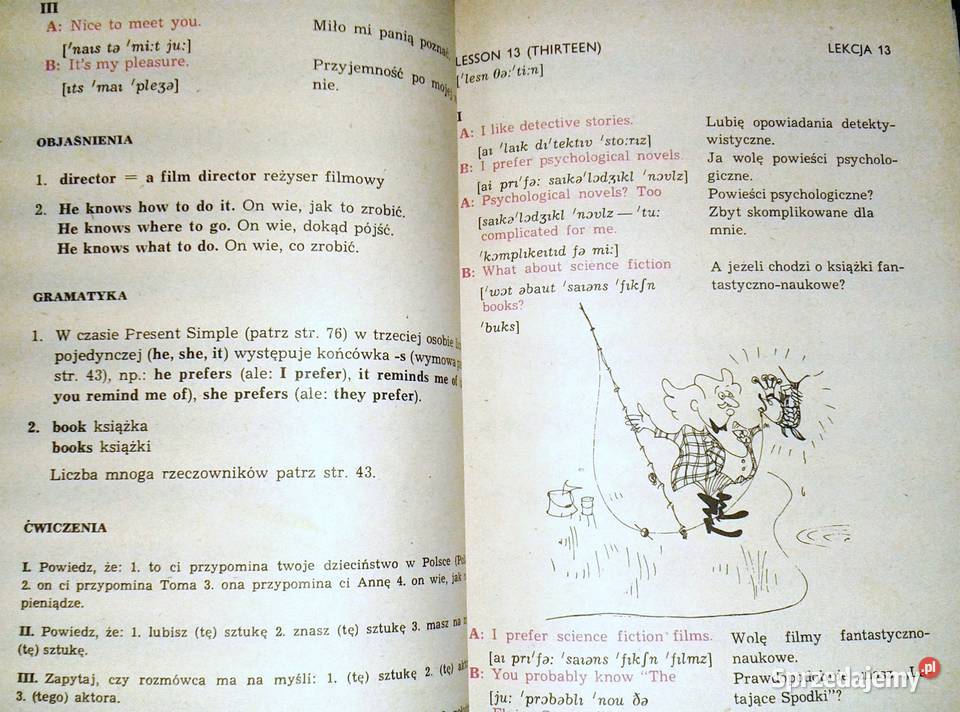 III
A: Nice to meet you.
Miło mi panią poznać.
['naıs tə 'mi:t ju:]
B: It's my pleasure.
Przyjemność po mojej
[ıts 'maı 'pleʒə]
nie.
OBJAŚNIENIA
1. director = a film director reżyser filmowy
2. He knows how to do it. On wie, jak to zrobić.
He knows where to go. On wie, dokąd pójść.
He knows what to do. On wie, co zrobić.
GRAMATYKA
1. W czasie Present Simple (patrz str. 76) w trzeciej osobie
pojedynczej (he, she, it) występuje końcówka -s (wymowa
str. 43), np.: he prefers (ale: I prefer), it reminds me of
you remind me of), she prefers (ale: they prefer).
2. book książka
books książki
Liczba mnoga rzeczowników patrz str. 43.
ĆWICZENIA
I. Powiedz, że: 1. to ci przypomina twoje dzieciństwo w Polsce
2. on ci przypomina Toma 3. ona przypomina ci Annę 4. on wie, jak
pieniądze.
II. Powiedz, że: 1. lubisz (tę) sztukę 2. znasz (tę) sztukę 3. masz na
(tę) sztukę.
III. Zapytaj, czy rozmówca ma na myśli: 1. (tę) sztukę 2. (tę)
3. (tego) aktora.
LESSON 13 (THIRTEEN)
LEKCJA 13
['lesn θə:'ti:n]
I
A: I like detective stories.
Lubię opowiadania detekty-
[aı 'laık dı'tektıv 'stɔ:rız]
wistyczne.
B: I prefer psychological novels.
Ja wolę powieści psycholo-
[ai prı'fə: saıkə'lɔdʒıkl 'nɔvlz]
giczne.
A: Psychological novels? Too
Powieści psychologiczne?
[saıkə'lɔdʒıkl 'nɔvlz — 'tu:
Zbyt skomplikowane dla
complicated for me.
mnie.
'kɔmplıkeıtıd fə mi:]
B: What about science fiction
A jeżeli chodzi o książki fan-
['wɔt əbaut 'saıəns 'fıkʃn
tastyczno-naukowe?
books?
'buks]
A: I prefer science fiction films.
Wolę filmy fantastyczno-
[aı prı'fə: 'saıəns 'fıkʃn 'fılmz]
naukowe.
B: You probably know "The
[ju: 'prɔbəblı 'nou ðə
tające Spodki"?
Sprzedajemy.pl